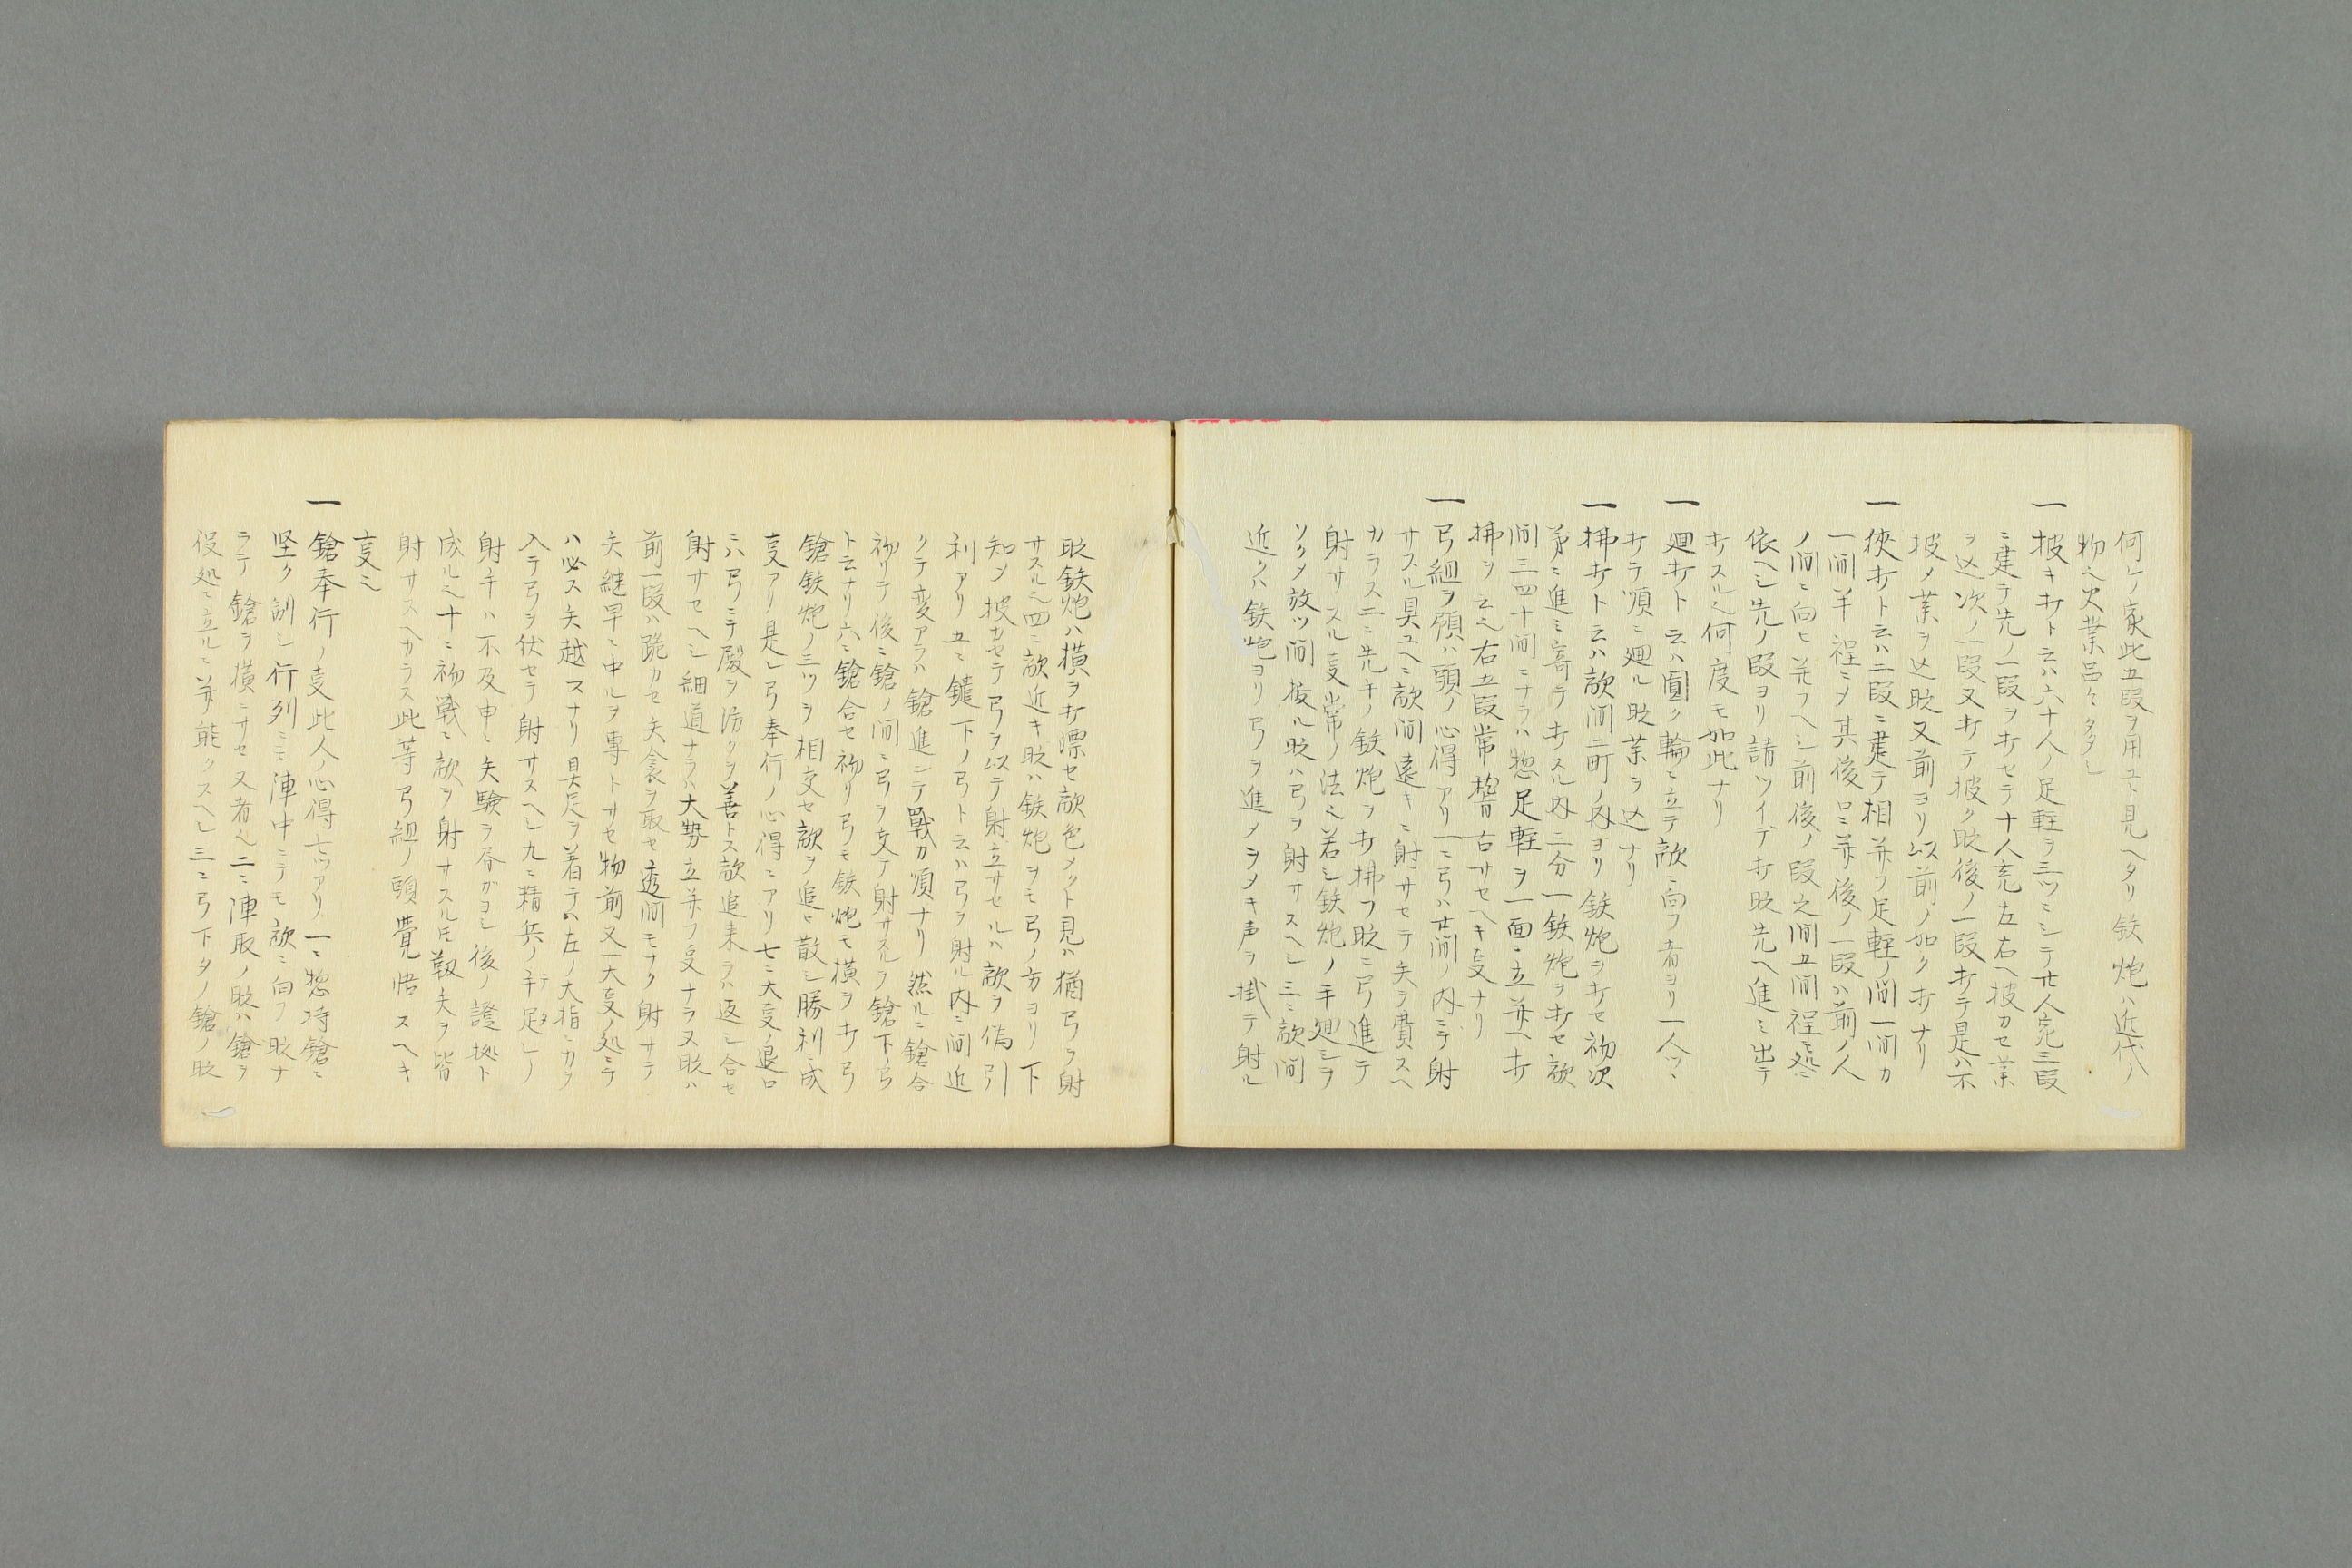 何レノ家此五段ヲ用ユト見ヘタリ鉄炮ハ近代ノ
物ヘ火業品々タヽシ
一披キ打ト云ハ六十人ノ足軽ヲ三ツニシテ廿人宛三段
ニ建テ先ノ一段ヲ打セテ十人宛左右ヘ披カセ薬
ヲ込次ノ一段又打テ披ク時後ノ一段打テ是ハ不
披メ薬ヲ込時又前ヨリ以前ノ如ク打ナリ
一狹打ト云ハ二段ニ建テ相並フ足軽ノ間一間カ
一間半程ニメ其後ロニ並後ノ一段ハ前ノ人
ノ間ニ向ヒ並フヘシ前後ノ段之間五間程ニ処ニ
依ヘシ先ノ段ヨリ請ツイデ打時先ヘ進ミ出テ
打スル也何度モ如此ナリ
一廻打ト云ハ圓ク輪ニ立テ敵ニ向フ者ヨリ一人ツヽ
打テ順ニ廻ル時薬ヲ込ナリ
一拂打ト云ハ敵間二町ノ内ヨリ鉄炮ヲ打セ初次
第ニ進ミ寄テ打スル内三分一鉄炮ヲ打セ敵
間三四十間ニナラハ惣足軽ヲ一面ニ立並ヘ打
拂ヲ云也右五段常稽古サセヘキ叓ナリ
一弓組ヲ預ハ頭ノ心得アリ一ニ弓ハ廿間ノ内ニテ射
サスル具ユヘニ敵間遠キニ射サセテ矢ヲ費スヘ
カラス二ニ先手ノ鉄炮ヲ打拂フ時ニ弓進テ
射サスル叓常ノ法也若シ鉄炮ノ手廻シヲ
ソクメ放ツ間後ル時ハ弓ヲ射サスヘシ三ニ敵間
近クハ鉄炮ヨリ弓ヲ進メヲメキ声ヲ掛テ射ル
時鉄炮ハ横ヲ打漂セ敵色メクト見ハ猶弓ヲ射
サスル也四ニ敵近キ時ハ鉄炮ヲモ弓ノ方ヨリ下
知メ披カセテ弓ヲ以テ射立サセルハ敵ヲ偽引
利アリ五ニ鑓下ノ弓ト云ハ弓ヲ射ル内ニ間近
クテ変アラハ鎗進ンテ戦カ順ナリ然ルニ鎗合
初リテ後ニ鎗ノ間ニ弓ヲ交テ射サスルヲ鎗下ノ弓
ト云ナリ六ニ鎗合セ初リ弓モ鉄炮モ横ヲ打弓
鎗鉄炮ノ三ツヲ相交セ敵ヲ追ヒ散シ勝利ニ成
叓アリ是レ弓奉行ノ心得ニアリ七ニ大叓ノ退口
ニハ弓ニテ殿ヲ防クヲ善トス敵追来ラハ返シ合セ
射サセヘシ細道ナラハ大勢立並フ叓ナラヌ時ハ
前一段ハ跪カセ矢衾ヲ取セ透間モナク射サテ
矢継早ニ中ルヲ專トサセ物前又一大叓ノ処ニテ
ハ必ス矢越スナリ具足ヲ着テハ左ノ大指ニカヲ
入テ弓ヲ伏セテ射サスヘシ九ニ精兵ノ手足レノ
射手ハ不及申ニ矢験ヲ居ガヨシ後ノ證拠ト
成ル也十ニ初戦ニ敵ヲ射サスル𪜈靱矢ヲ皆
射サスヘカラス此等弓組ノ頭覺悟スヘキ
叓ニ
一鎗奉行ノ叓此人ノ心得七ツアリ一ニ惣持鎗ニ
堅ク訓シ行列ニモ陣中ニテモ敵ニ向フ時ナ
ラテ鎗ヲ横ニサセヌ者也二ニ陣取ノ時ハ鎗ヲ
役処ニ立ルニ並能クスヘシ三ニ弓下タノ鎗ノ時